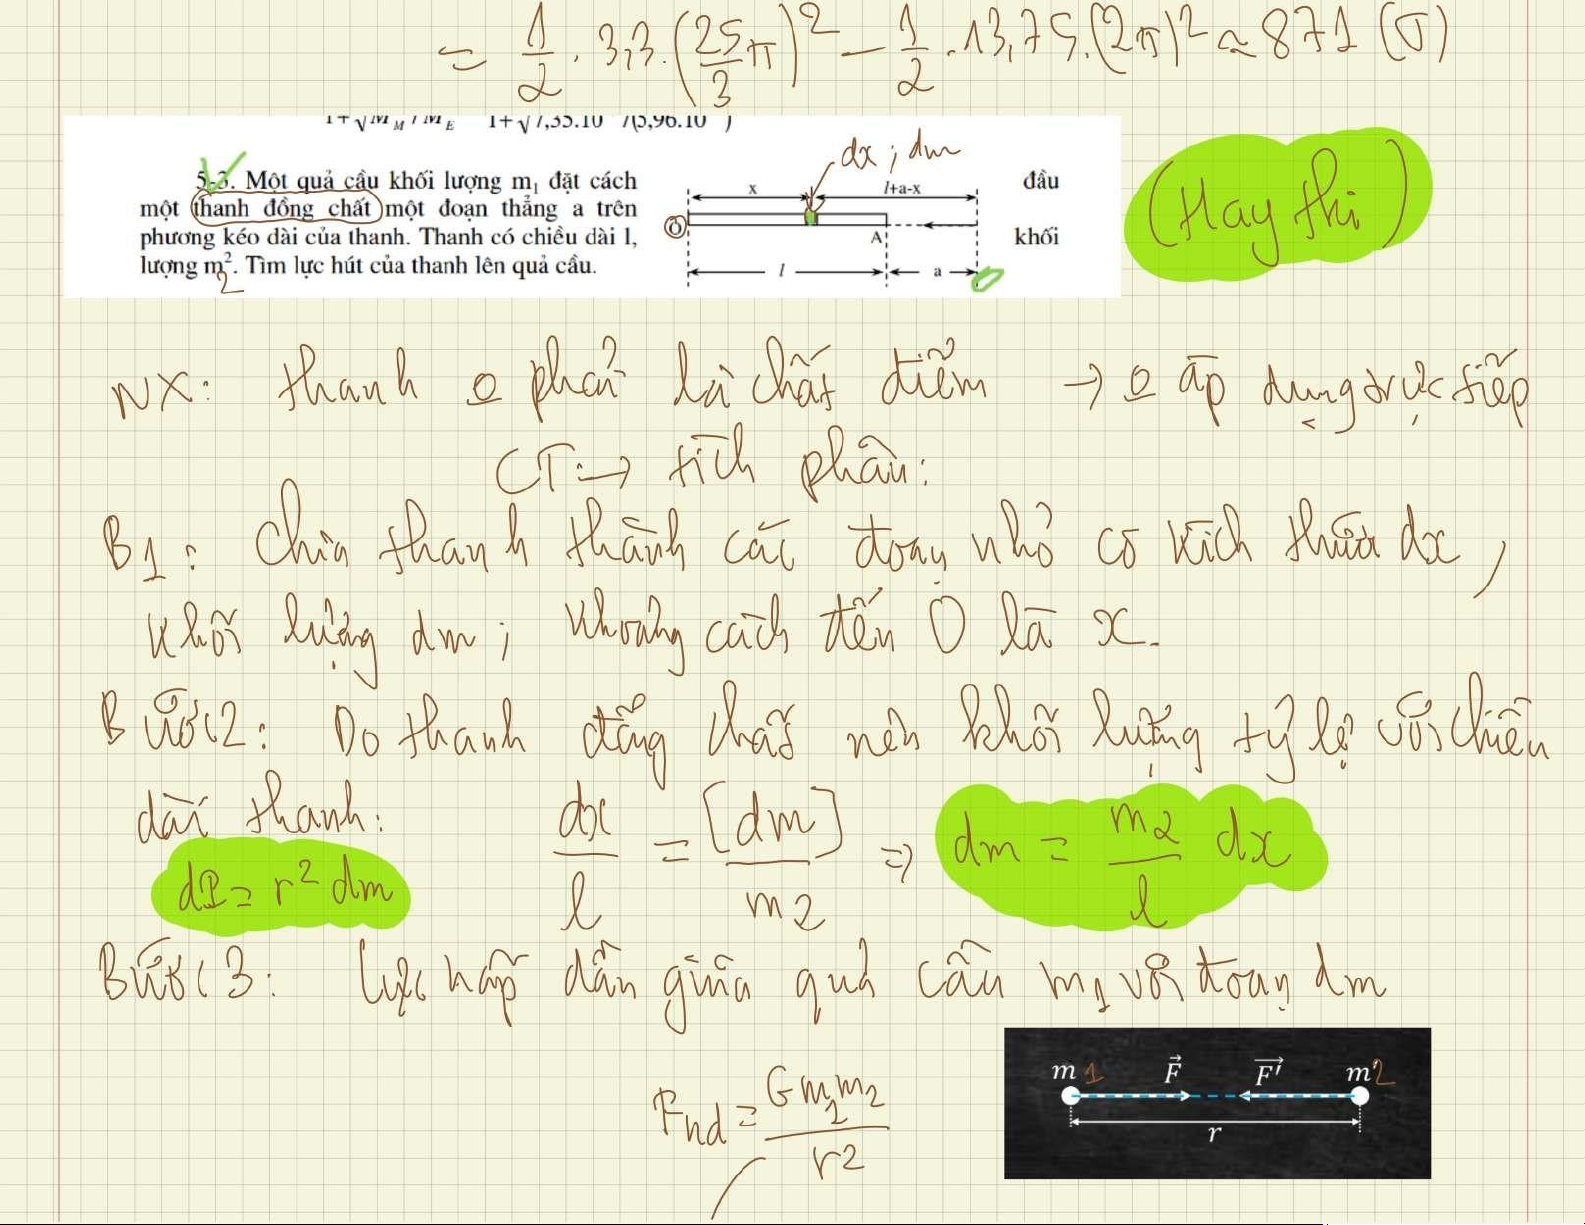 = 1/2 . 3,3 . (25/3 π)² − 1/2 . 13,75 . (2π)² ≈ 871 (J)
dx ; dm
5-3. Một quả cầu khối lượng m₁ đặt cách đầu
một thanh đồng chất một đoạn thẳng a trên
phương kéo dài của thanh. Thanh có chiều dài l, khối
lượng m². Tìm lực hút của thanh lên quả cầu.
2
x l+a-x
O A
l a
(Hay thi)
NX: thanh o phải là chất điểm → o áp dụng trực tiếp
CT → tích phân:
B1: Chia thanh thành các đoạn nhỏ có kích thước dx,
khối lượng dm ; khoảng cách đến O là x.
Bước 2: Do thanh đồng chất nên khối lượng tỷ lệ với chiều
dài thanh: dx/l = [dm]/m2 ⇒ dm = m2/l dx
dI = r² dm
Bước 3: Lực hấp dẫn giữa quả cầu m1 với đoạn dm
Fhd = G m1 m2 / r2
m 1 F⃗ F'⃗ m'2
r